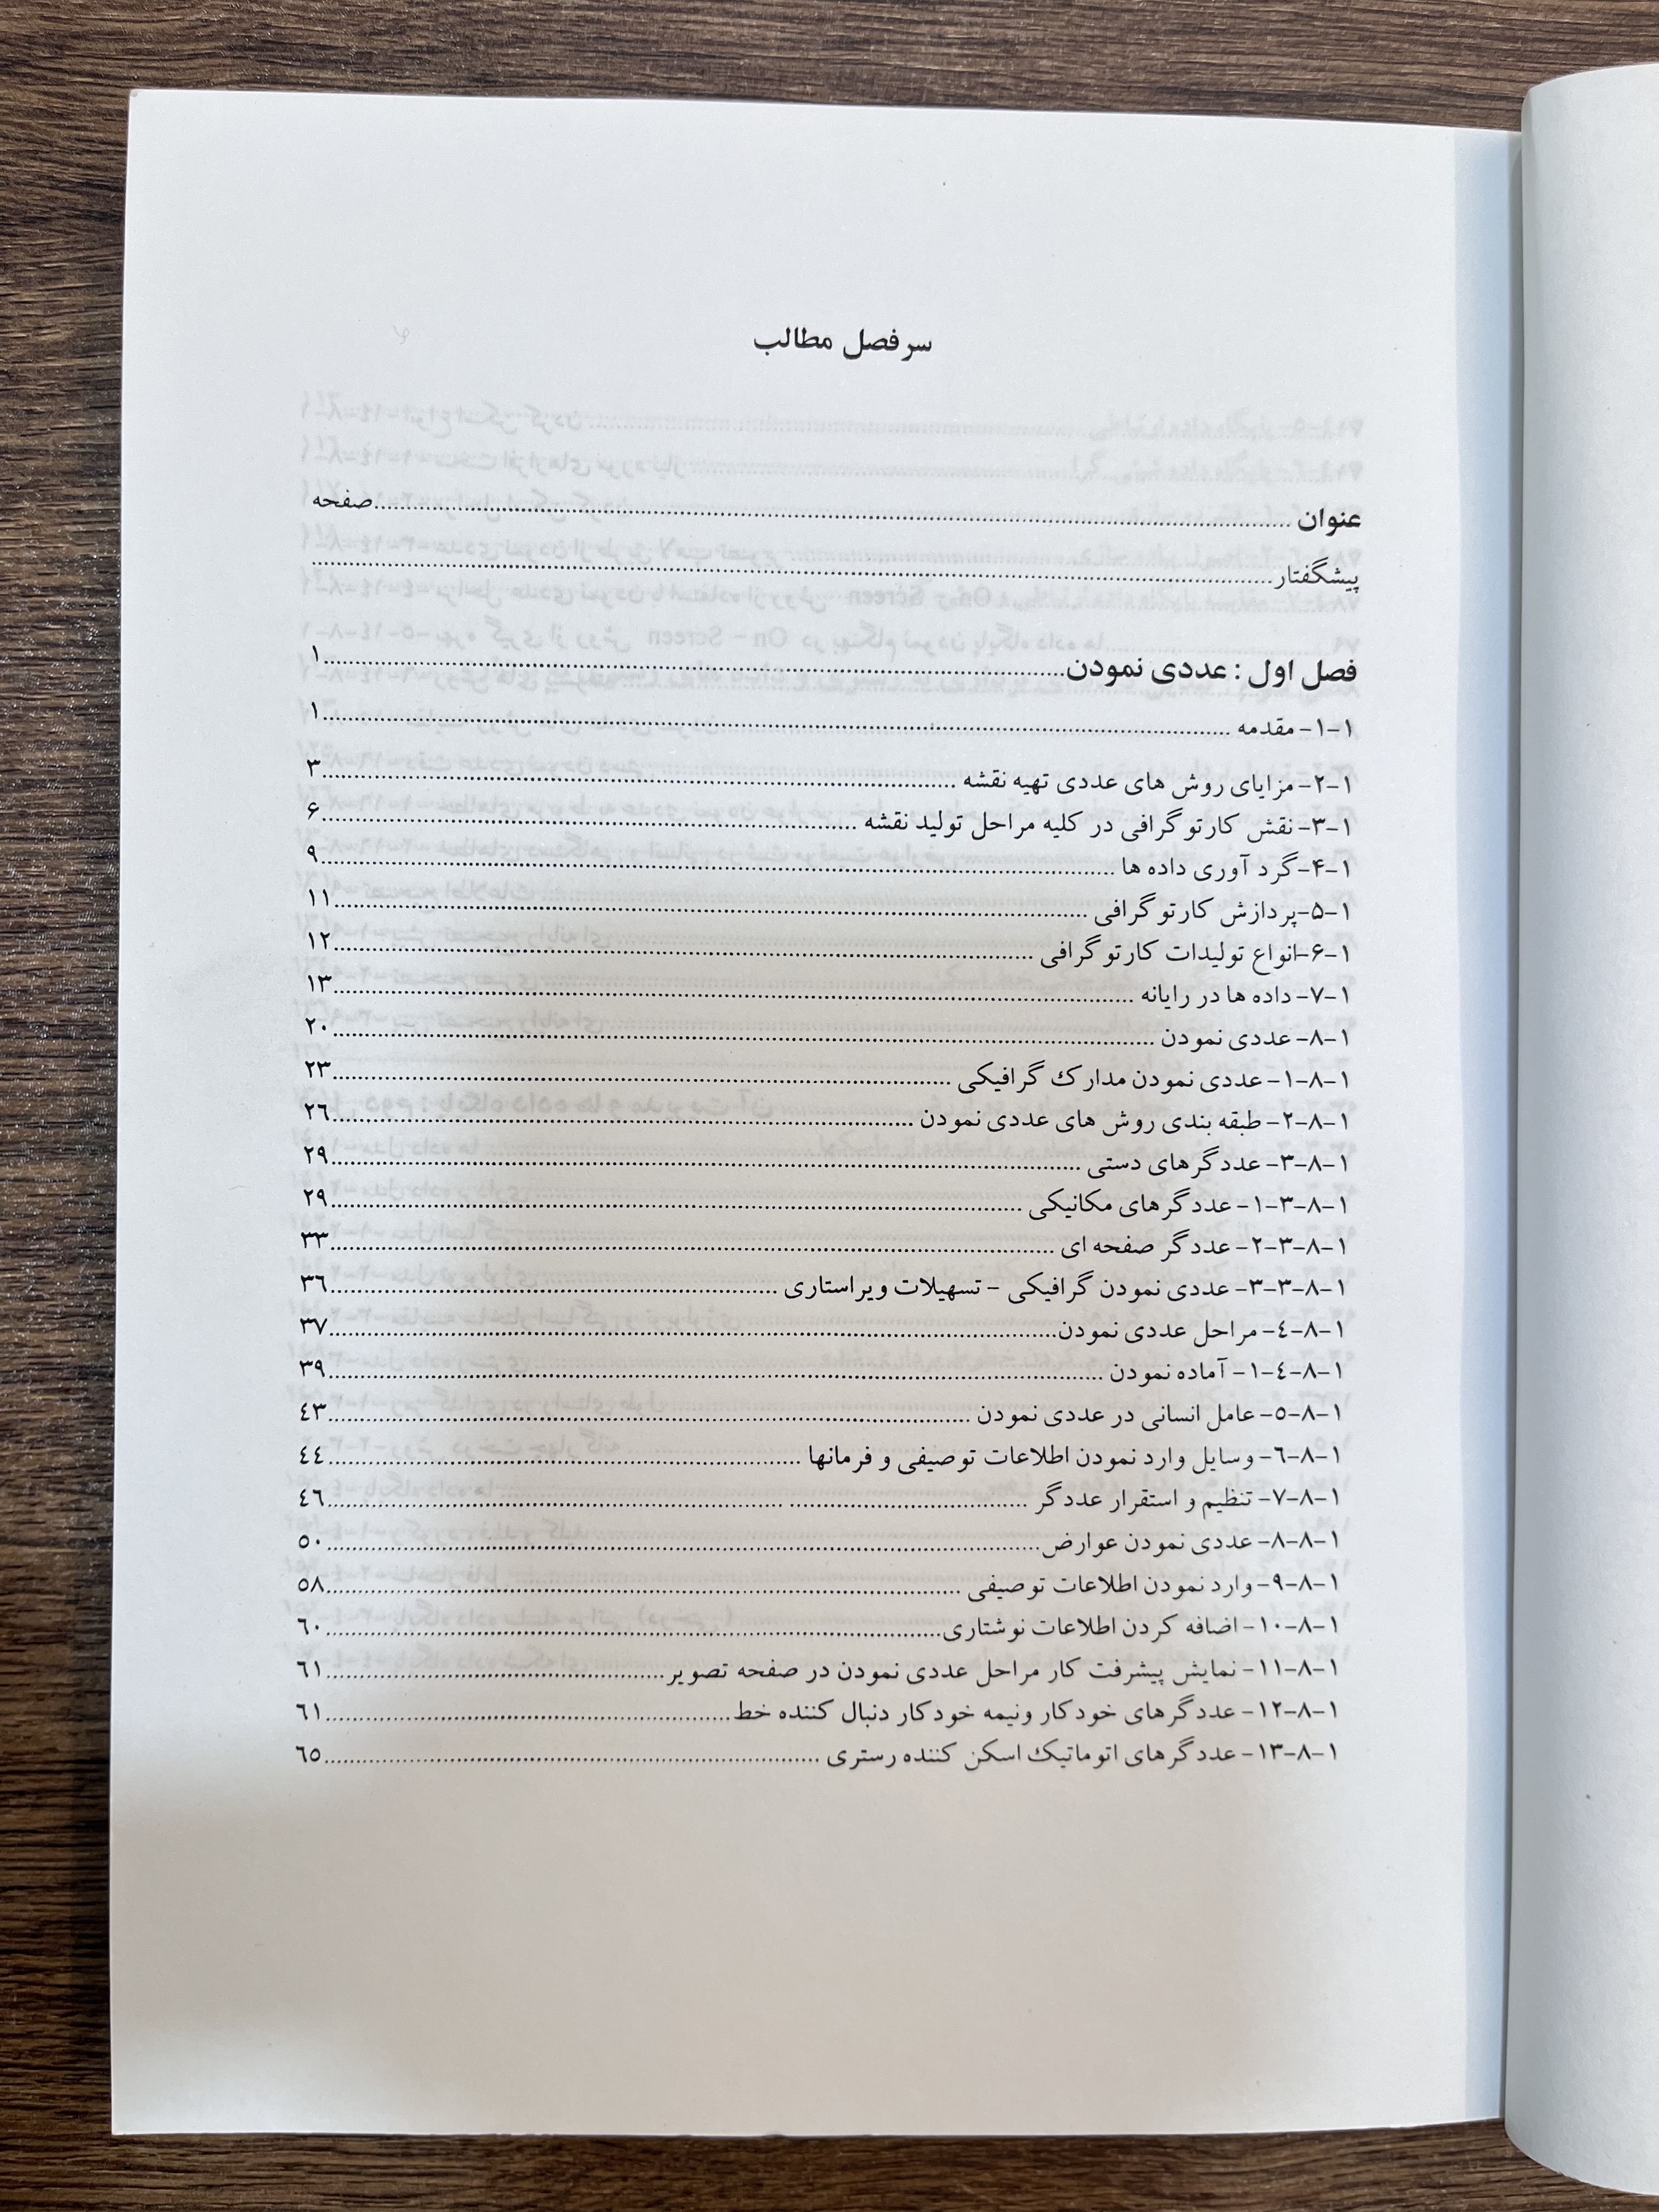 سرفصل مطالب
عنوان ........ صفحه
پیشگفتار ........
فصل اول : عددی نمودن ........ ۱
۱-۱- مقدمه ........ ۱
۱-۲- مزایای روش های عددی تهیه نقشه ........ ۳
۱-۳- نقش کارتوگرافی در کلیه مراحل تولید نقشه ........ ۶
۱-۴- گرد آوری داده ها ........ ۹
۱-۵-پردازش کارتوگرافی ........ ۱۱
۱-۶-انواع تولیدات کارتوگرافی ........ ۱۲
۱-۷- داده ها در رایانه ........ ۱۳
۱-۸- عددی نمودن ........ ۲۰
۱-۸-۱- عددی نمودن مدارک گرافیکی ........ ۲۳
۱-۸-۲- طبقه بندی روش های عددی نمودن ........ ۲٦
۱-۸-۳- عددگرهای دستی ........ ۲۹
۱-۸-۳-۱- عددگرهای مکانیکی ........ ۲۹
۱-۸-۳-۲- عددگر صفحه ای ........ ۳۳
۱-۸-۳-۳- عددی نمودن گرافیکی - تسهیلات ویراستاری ........ ۳٦
۱-۸-٤- مراحل عددی نمودن ........ ۳۷
۱-۸-٤-۱- آماده نمودن ........ ۳۹
۱-۸-٥- عامل انسانی در عددی نمودن ........ ٤۳
۱-۸-٦- وسایل وارد نمودن اطلاعات توصیفی و فرمانها ........ ٤٤
۱-۸-۷- تنظیم و استقرار عددگر ........ ٤٦
۱-۸-۸- عددی نمودن عوارض ........ ٥۰
۱-۸-۹- وارد نمودن اطلاعات توصیفی ........ ٥۸
۱-۸-۱۰- اضافه کردن اطلاعات نوشتاری ........ ٦۰
۱-۸-۱۱- نمایش پیشرفت کار مراحل عددی نمودن در صفحه تصویر ........ ٦۱
۱-۸-۱۲- عددگرهای خودکار ونیمه خودکار دنبال کننده خط ........ ٦۱
۱-۸-۱۳- عددگرهای اتوماتیک اسکن کننده رستری ........ ٦٥